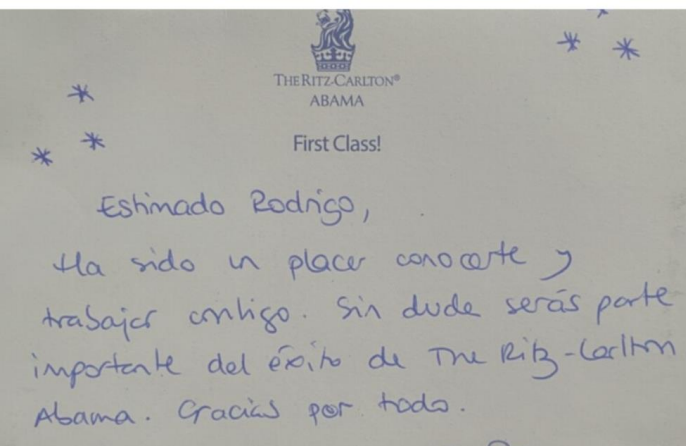 THE RITZ-CARLTON®
ABAMA
First Class!
Estimado Rodrigo,
Ha sido un placer conocerte y
trabajar contigo. Sin duda serás parte
importante del éxito de The Ritz-Carlton
Abama. Gracias por todo.